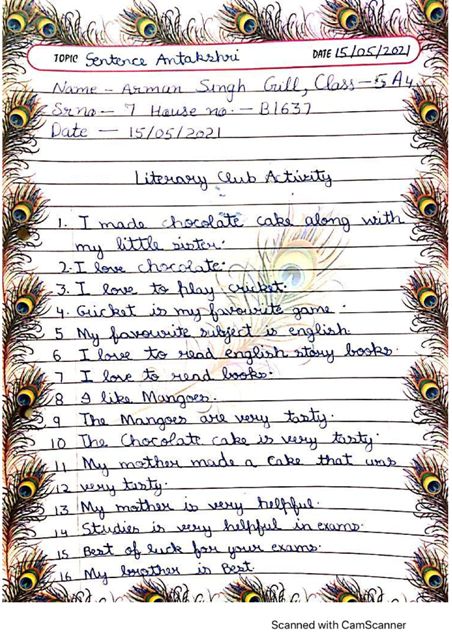 TOPIC Sentence Antakshri DATE 15/05/2021
Name - Armun Singh Gill, Class - 5 A4
Sr no - 7 House no. - B1637
Date - 15/05/2021
Literary Club Activity
1. I made chocolate cake along with
my little sister.
2. I love chocolate.
3. I love to play cricket.
4. Cricket is my favourite game.
5 My favourite subject is english
6 I love to read english story books.
7 I love to read books.
8 I like Mangoes.
9 The Mangoes are very tasty.
10 The Chocolate cake is very tasty.
11 My mother made a Cake that was
12 very tasty.
13 My mother is very helpful.
14 Studies is very helpful in exams.
15 Best of luck for your exams.
16 My brother is Best.
Scanned with CamScanner